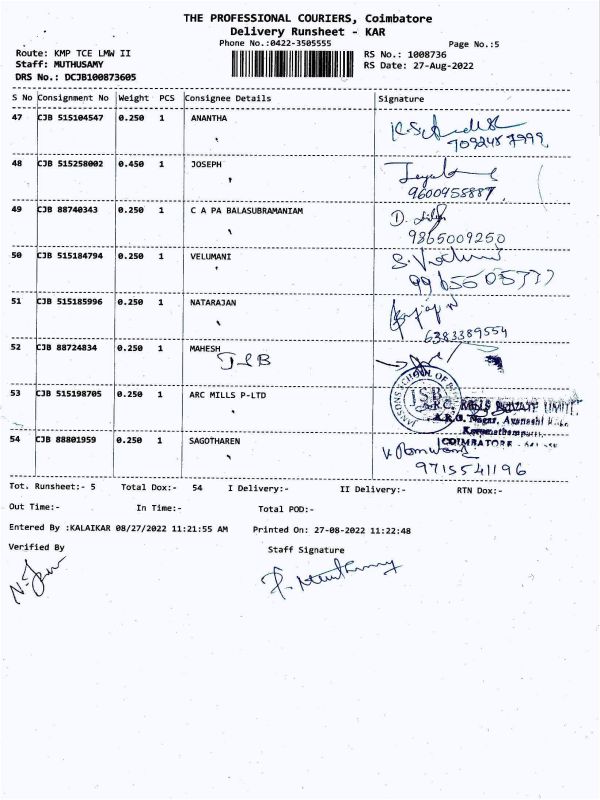 THE PROFESSIONAL COURIERS, Coimbatore
Delivery Runsheet - KAR
Phone No.:0422-3505555
Page No.:5
Route: KMP TCE LMW II
RS No.: 1008736
Staff: MUTHUSAMY
RS Date: 27-Aug-2022
DRS No.: DCJB100873605
S No Consignment No Weight PCS Consignee Details Signature
47 CJB 515104547 0.250 1 ANANTHA
48 CJB 515258002 0.450 1 JOSEPH
9600955887
49 CJB 88740343 0.250 1 C A PA BALASUBRAMANIAM
9865009250
50 CJB 515184794 0.250 1 VELUMANI
51 CJB 515185996 0.250 1 NATARAJAN
6383389554
52 CJB 88724834 0.250 1 MAHESH
JSB
JANSONS SCHOOL OF
JSB
53 CJB 515198705 0.250 1 ARC MILLS P-LTD
COIMBATORE
54 CJB 88801959 0.250 1 SAGOTHAREN
9715541196
Tot. Runsheet:- 5 Total Dox:- 54 I Delivery:- II Delivery:- RTN Dox:-
Out Time:- In Time:- Total POD:-
Entered By :KALAIKAR 08/27/2022 11:21:55 AM Printed On: 27-08-2022 11:22:48
Verified By Staff Signature